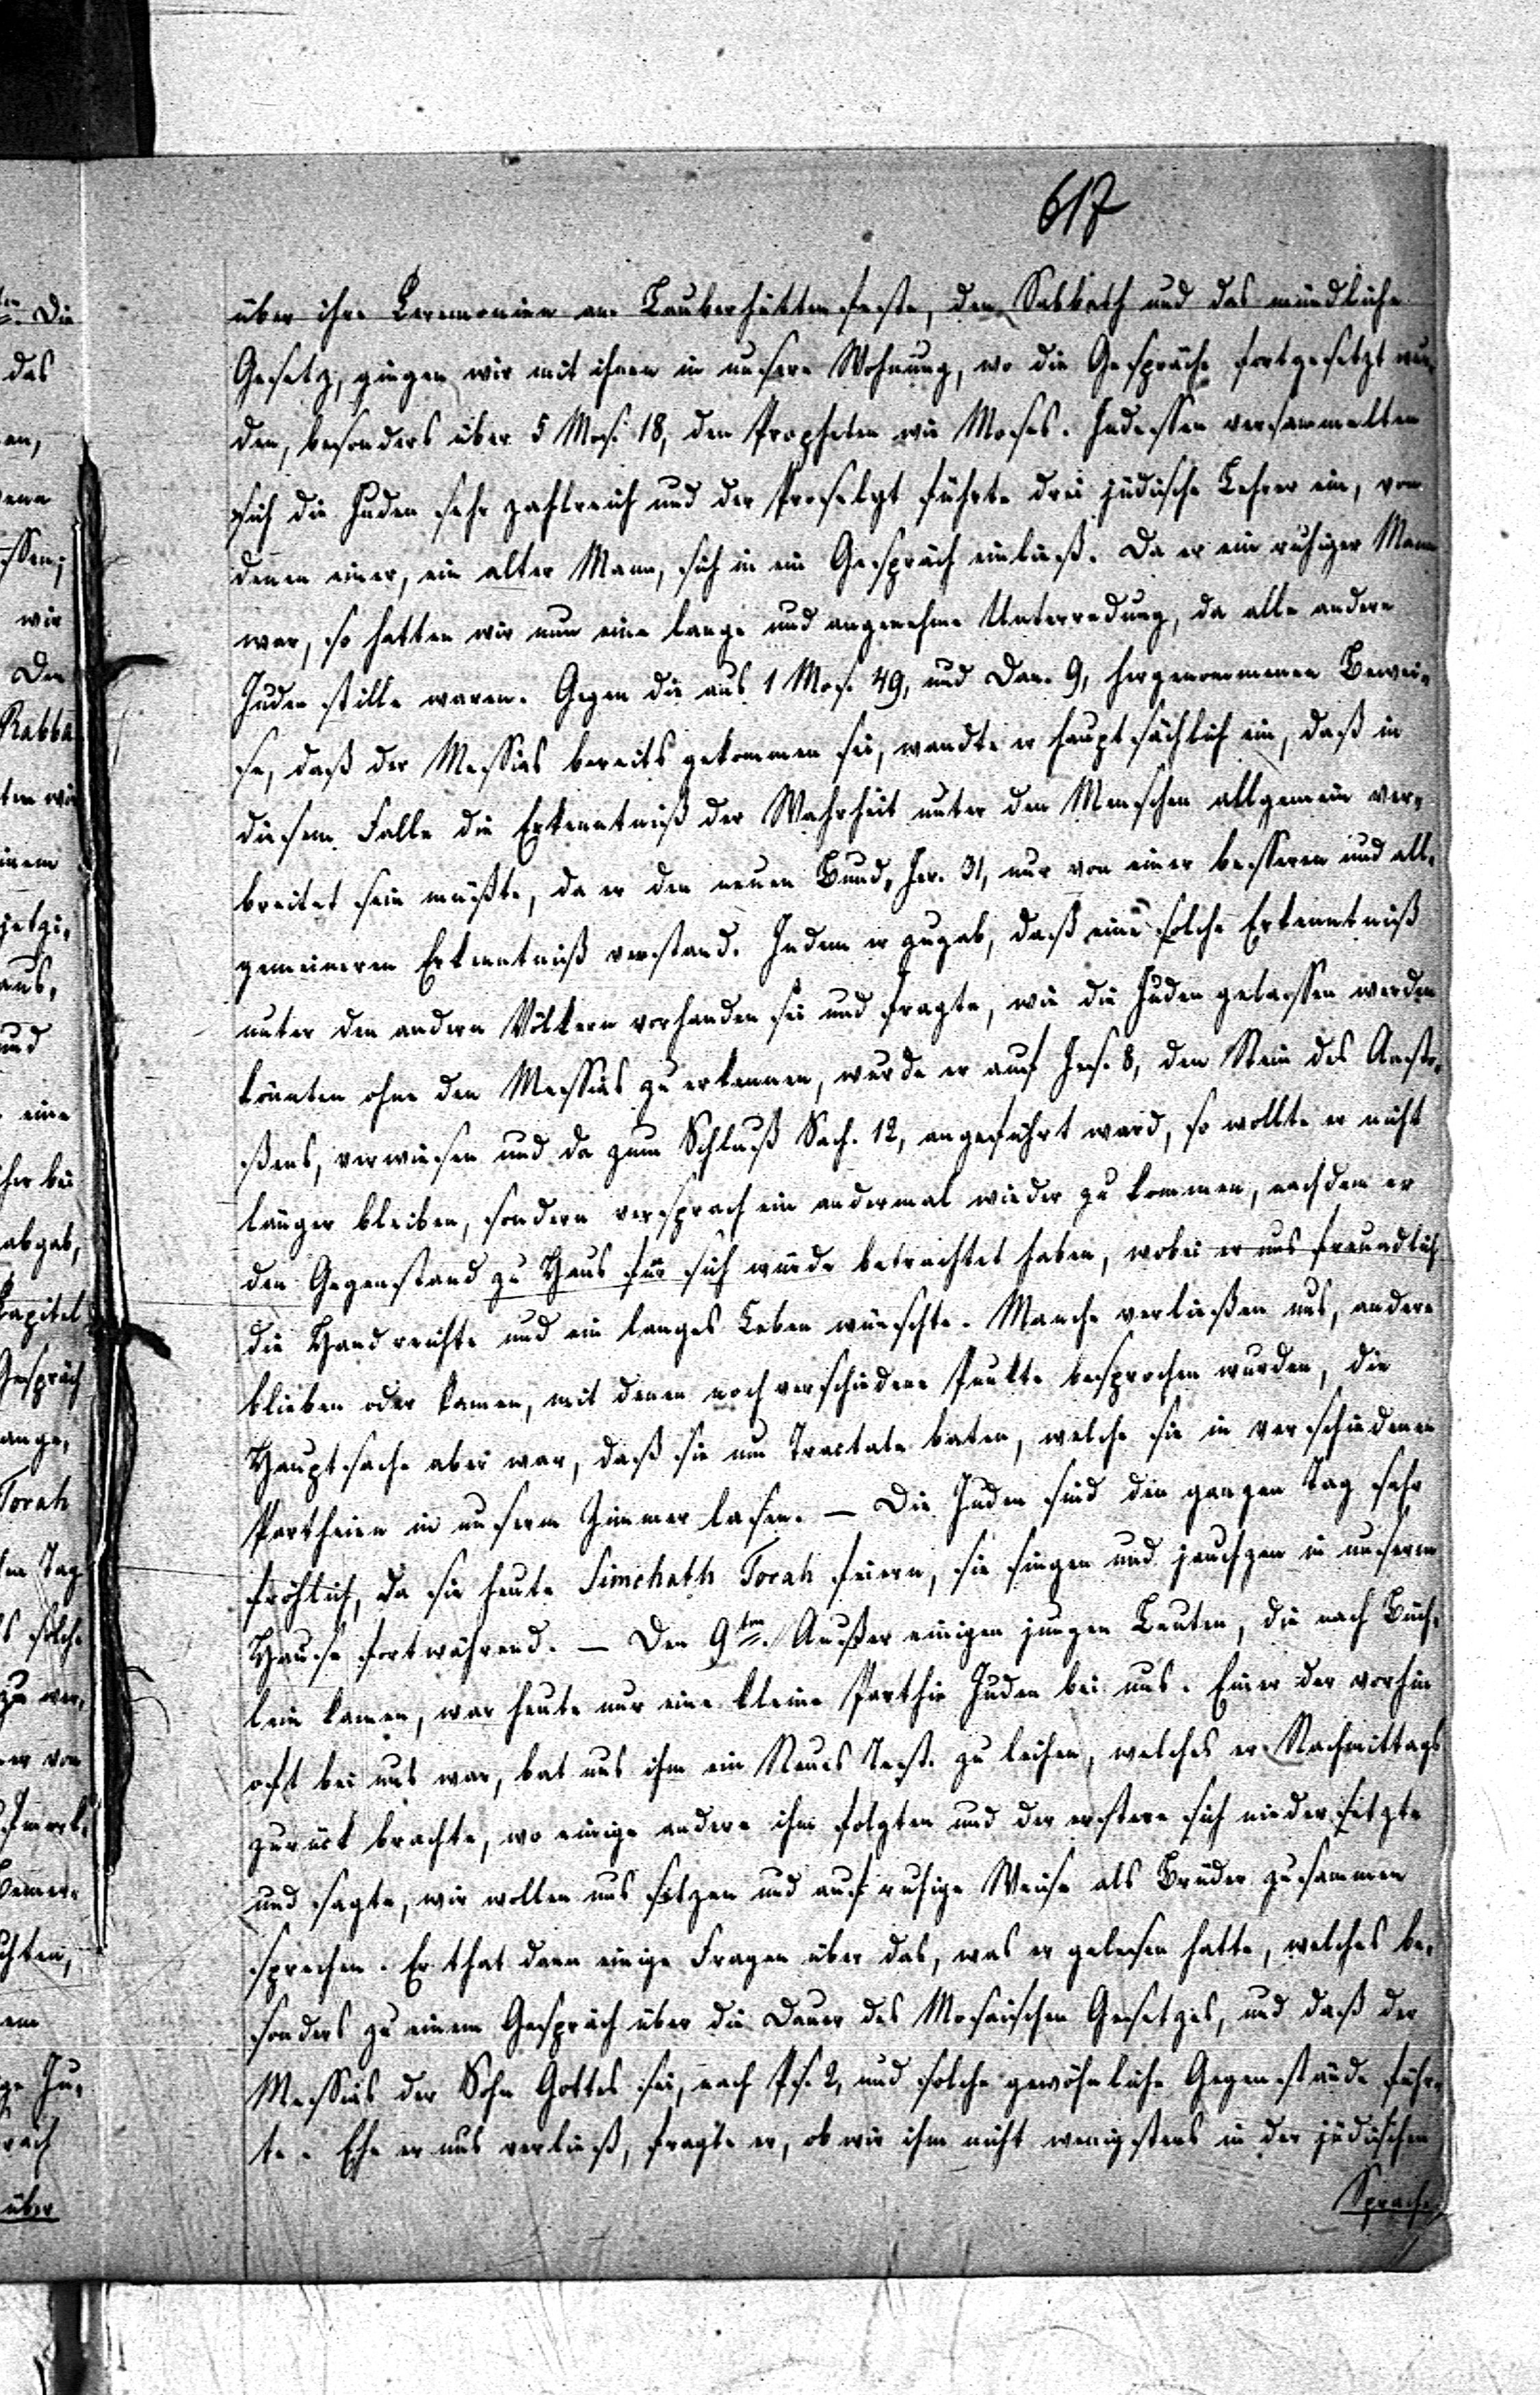 617
über ihre Ceremonien am Lauberhüttenfeste, den Sabbath und das mündliche
Gesetz, gingen wir mit ihnen in unsere Wohnung, wo die Gespräche fortgesetzt wur-
den, besonders über 5 Mos. 18, den Propheten wie Moses. Indessen versammelten
sich die Juden sehr zahlreich und der Proselyt führte drei jüdische Lehrer ein, von
denen einer, ein alter Mann, sich in ein Gespräch einließ. Da er ein ruhiger Mann
war, so hatten wir nun eine lange und angenehme Unterredung, da alle andern
Juden stille waren. Gegen die aus 1 Mos. 49, und Dan. 9, hergenommenen Bewei-
se, daß der Messias bereits gekommen sei, wandte er hauptsächlich ein, daß in
diesem Falle die Erkenntniß der Wahrheit unter den Menschen allgemein ver-
breitet sein müßte, da er den neuen Bund, Jer. 31, nur von einer besseren und all-
gemeineren Erkenntniß verstand. Indem er zugab, daß eine solche Erkenntniß
unter den andern Völkern vorhanden sei und fragte, wie die Juden gelassen werden
könnten ohne den Messias zu erkennen, wurde er auf Jes. 8, den Stein des Ansto-
ßens, verwiesen und da zum Schluß Sach. 12, angeführt ward, so wollte er nicht
länger bleiben, sondern versprach ein andermal wieder zu kommen, nachdem er
den Gegenstand zu Haus für sich würde betrachtet haben, wobei er uns freundlich
die Hand reichte und ein langes Leben wünschte. Manche verließen uns, andere
blieben oder kamen, mit denen noch verschiedene Punkte besprochen wurden, die
Hauptsache aber war, daß sie um Tractate baten, welche sie in verschiedenen
Partheien in unserm Zimmer lasen. — Die Juden sind den ganzen Tag sehr
fröhlich, da sie heute Simchath Torah feiern, sie singen und jauchzen in unserm
Hause fortwährend. — Den 9ten. Außer einigen jungen Leuten, die nach Büch-
lein kamen, war heute nur eine kleine Parthie Juden bei uns. Einer der vorhin
oft bei uns war, bat uns ihm ein Neues Test. zu leihen, welches er Nachmittags
zurück brachte, wo einige andere ihm folgten und der erstere sich niedersetzte
und sagte, wir wollen uns setzen und auf ruhige Weise als Brüder zusammen
sprechen. Er that dann einige Fragen über das, was er gelesen hatte, welches be-
sonders zu einem Gespräch über die Dauer des Mosaischen Gesetzes, und daß der
Messias der Sohn Gottes sei, nach Ps. 2, und solche gewöhnliche Gegenstände führ-
te. Ehe er uns verließ, fragte er, ob wir ihm nicht wenigstens in der jüdischen
Sprache